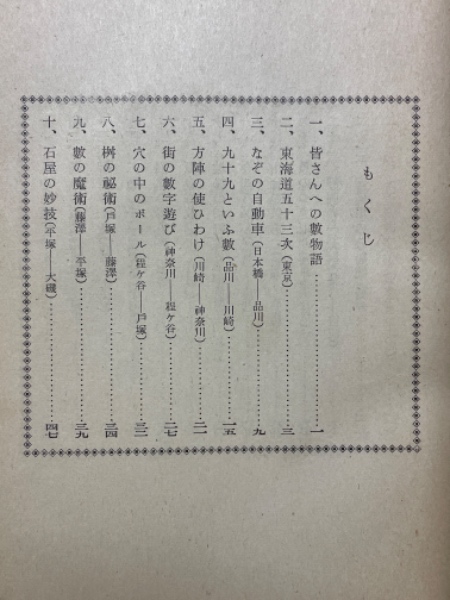 もくじ
一、皆さんへの數物語…………一
二、東海道五十三次(東京)…………三
三、なぞの自動車(日本橋――品川)…………九
四、九十九といふ數(品川――川崎)…………一五
五、方陣の使ひわけ(川崎――神奈川)…………二一
六、街の數字遊び(神奈川――程ケ谷)…………二七
七、穴の中のボール(程ケ谷――戸塚)…………三二
八、桝の祕術(戸塚――藤澤)…………三四
九、數の魔術(藤澤――平塚)…………三九
十、石屋の妙技(平塚――大磯)…………四七